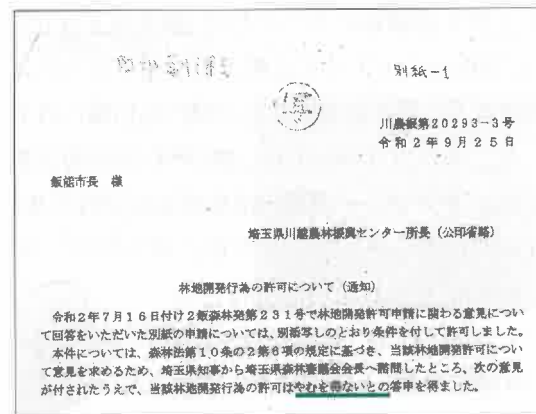 別紙-1
川農振第20293-3号
令和2年9月25日
飯能市長 様
埼玉県川越農林振興センター所長（公印省略）
林地開発行為の許可について（通知）
令和2年7月16日付け2飯森林発第231号で林地開発許可申請に関わる意見につい
て回答をいただいた別紙の申請については、別添写しのとおり条件を付して許可しました。
本件については、森林法第10条の2第6項の規定に基づき、当該林地開発許可につい
て意見を求めるため、埼玉県知事から埼玉県森林審議会会長へ諮問したところ、次の意見
が付されたうえで、当該林地開発行為の許可はやむを得ないとの答申を得ました。